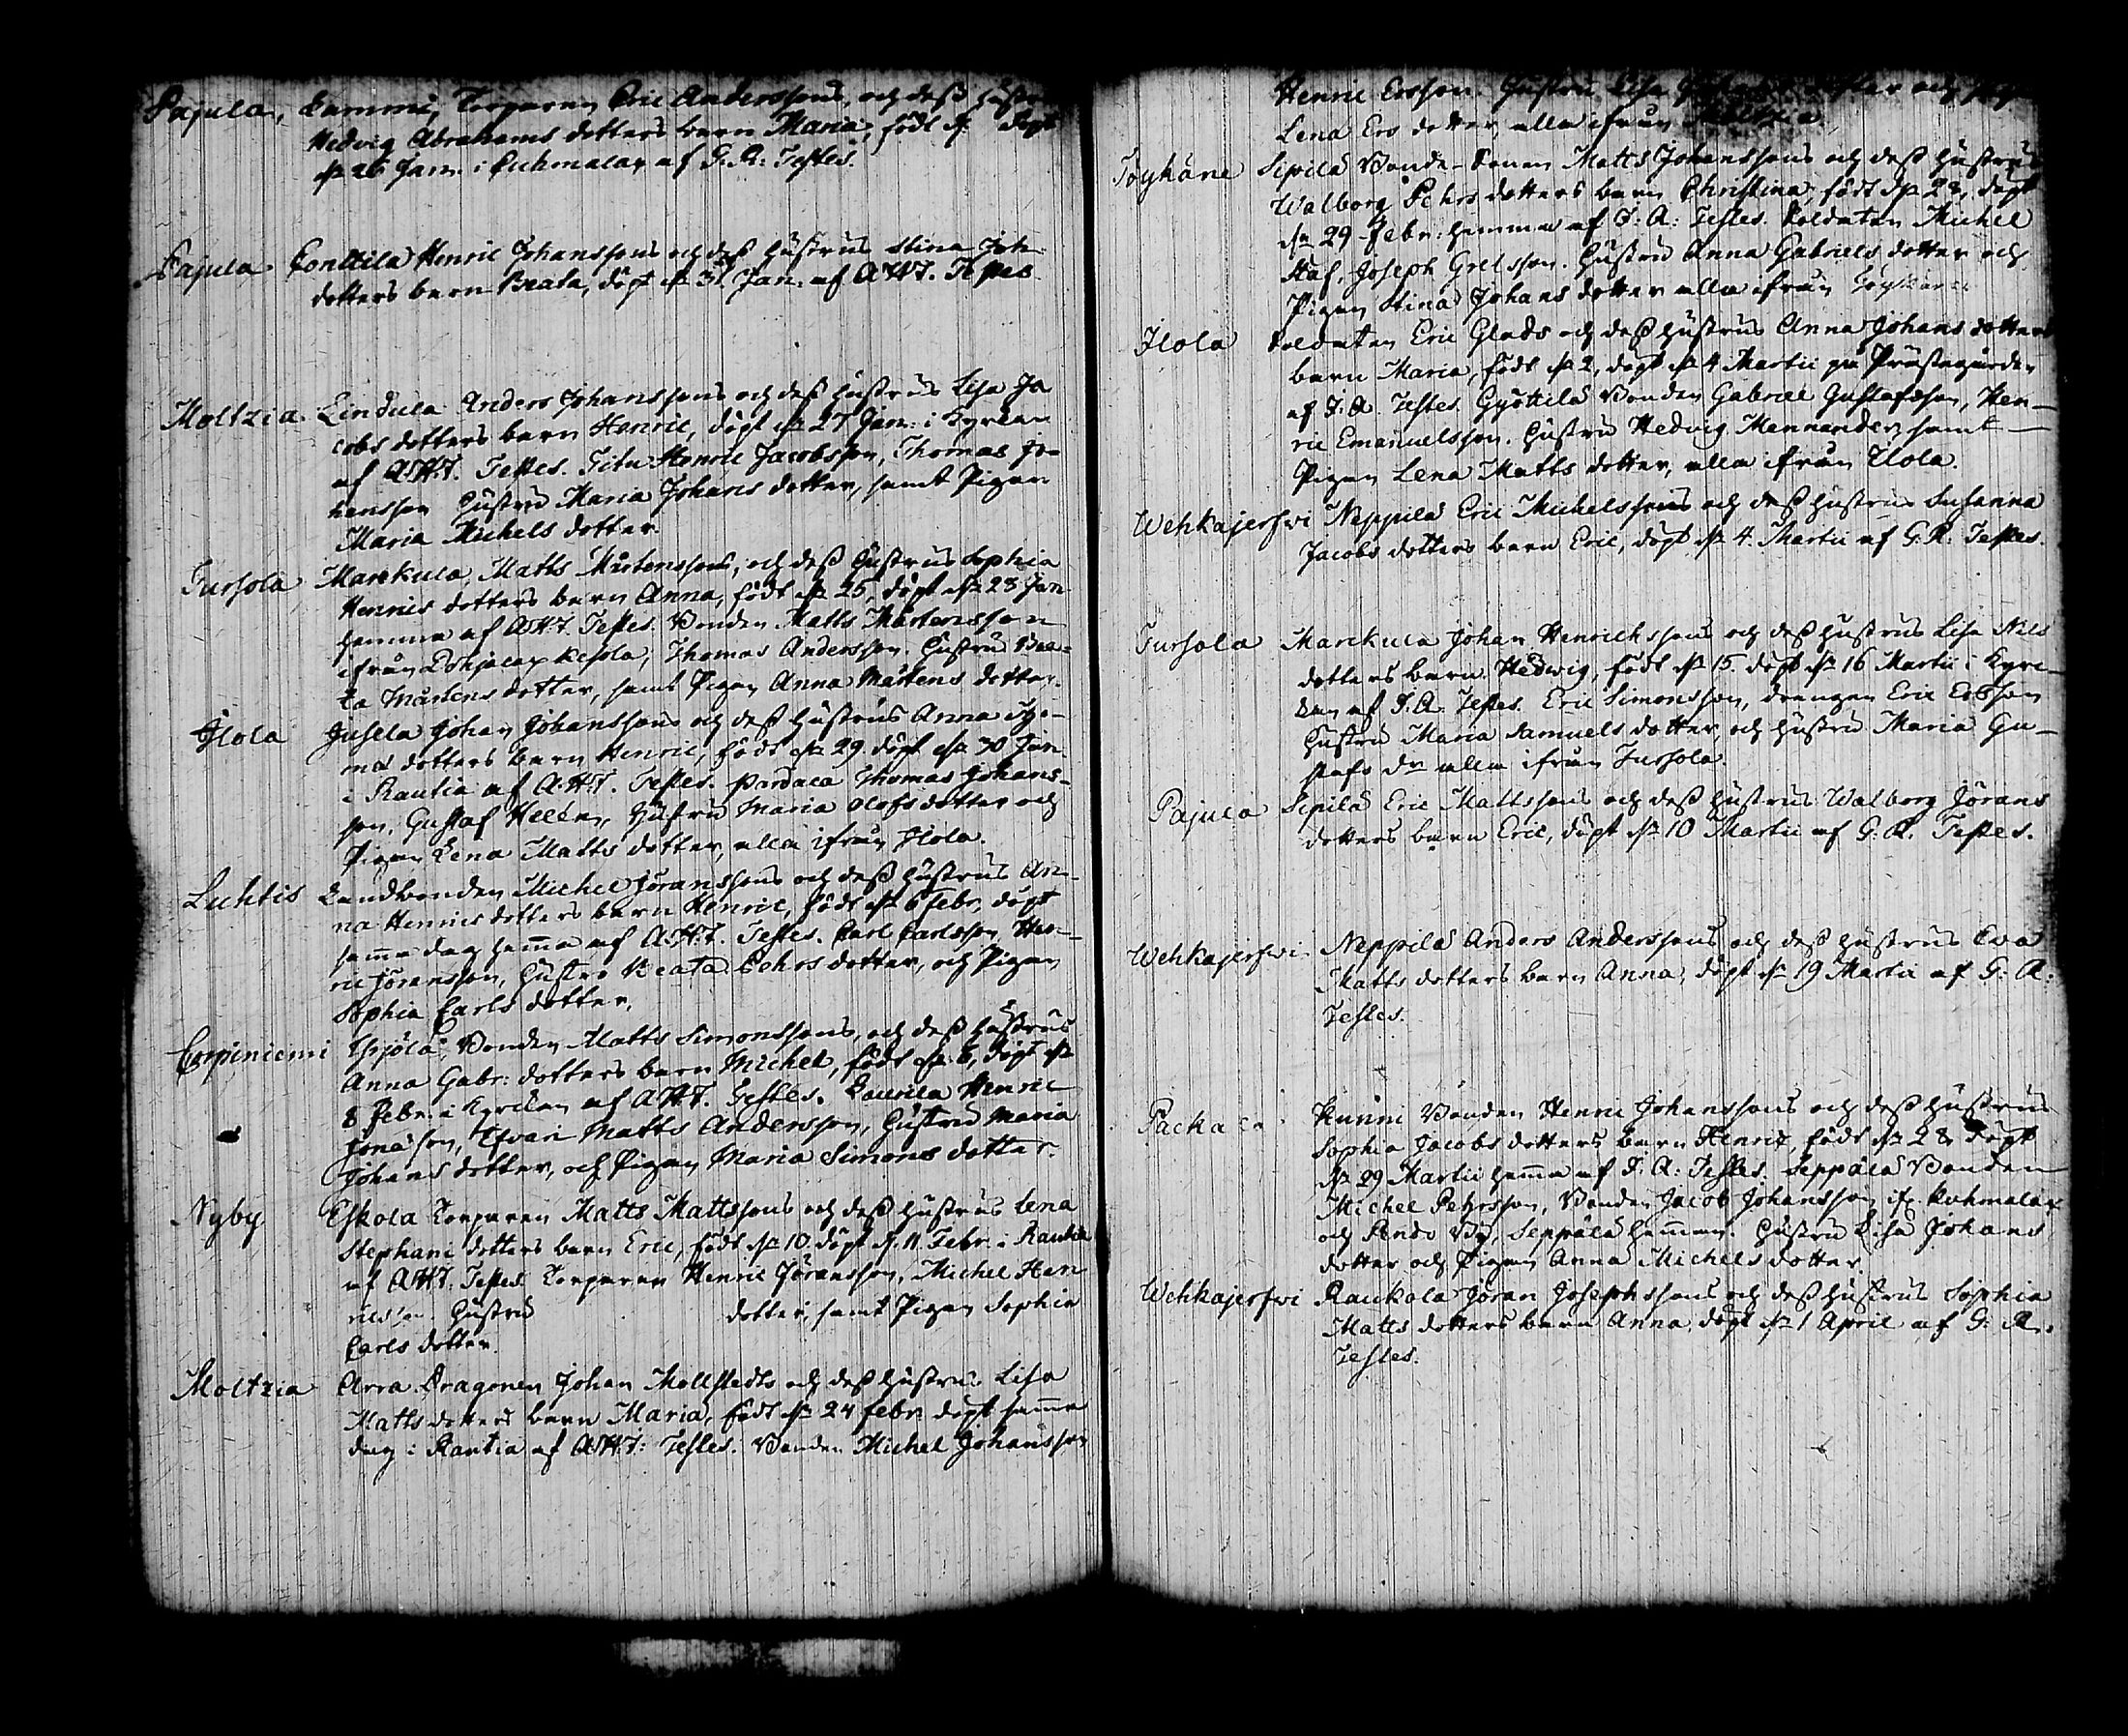 Pajula, Lammi, Torparen Eric Anderssons, och dess hustrus
Hedvig Abrahams dotters barn Maria, födt d. döpt
dn 26 Jan. i Cuhmalax af G. R: Testes.
Pajula Conttila Henric Johanssons och dess hustrus Stina Joh.
dotters barn Beata, döpt dn 31 Jan. af AWT. Testes
Moltzia. Lindula Anders Johanssons och dess hustrus Lisa Ja
cobs dotters barn Henric, döpt dn 27 Jan: i Kyrckan
af AWT. Testes. Titu Henric Jacobsson, Thomas Jo-
hansson Hustru Maria Johans dotter, samt Pigan
Maria Michels dotter.
Tursola Marckula, Matts Mårtenssons, och dess hustrus Sophia
Henrics dotters barn Anna, födt dn 25, döpt dn 28 Jan
hemma af AWT. Testes. Bonden Matts Mårtensson
ifrån Kesola, Thomas Andersson. Hustru Bea-
ta Mårtens dotter, samt Pigan Anna Mårtens dotter.
Ilola Jusela Johan Johanssons och dess hustrus Anna Tho-
mæ dotters barn Henric, födt dn 29 döpt dn 30 Jan
i Rautia af AWT. Testes. Pardaca Thomas Johans-
son, Gustaf Hellén, Hustru Maria Olofs dotter och
Pigan Lena Matts dotter, alla ifrån Ilola.
Luhtis Landbonden Michel Jöranssons och dess hustrus An-
na Henrics dotters barn Henric, födt dn 6 Febr, döpt
samma dag hemma af AWT. Testes. Carl Carlsson, Hen-
ric Jöransson, Hustru Beata Pehrs dotter, och Pigan
Sophia Carls dotter.
Corpiniemi Ypöla, Bonden Matts Simonssons, och dess hustrus
Anna Gabr: dotters barn Michel, födt dn 6, döpt dn
8 Febr. i Kyrckan af AWT. Testes. Laurila Henric
Jonæson, Yfvari Matts Andersson, Hustru Maria
Johans dotter, och Pigan Maria Simons dotter.
Nyby Eskola Torparen Matts Mattssons och dess hustrus Lena
Stephani dotters barn Eric, födt dn 10 döpt d. 11 Febr. i Rautia
af AWT. Testes Torparen Henric Jöransson, Michel Hen
ricsson Hustru dotter, samt Pigan Sophia
Carls dotter.
Moltzia Arra Dragonen Johan Mollstedts och dess hustrus Lisa
Matts dotters barn Maria, födt dn 24 febr. döpt samma
dag i Rautia af AWT: Testes. Bonden Michel Johansson
Henric Ersson. Hustru Lisa dotter och
Lena Ers dotter, alla ifrån Moltzia
Töyhäne Sipilä Bonde-Sonen Matts Johanssons och dess hustrus
Walborg Pehrs dotters barn Christina, födt dn 28, döpt
dn 29 Febr: hemma af J. A: Testes. Soldaten Michel
Staf, Joseph Grelsson. Hustru Anna Gabriels dotter och
Pigan Stina Johans dotter alla ifrån Töyhäne
Ilola Soldaten Eric Glads och dess hustrus Anna Johans dotters
barn Maria, födt dn 2, döpt dn 4 Martii på Prästegården
af J. A. Testes. Gyöttilä Bonden Gabriel Gustafsson, Hen-
ric Emanuelsson. Hustru Hedvig Mennander, samt
Pigan Lena Matts dotter, alla ifrån Ilola.
Wehkajerfwi Neppilä Eric Michelssons och dess hustrus Susanna
Jacobs dotters barn Eric, döpt dn 4. Martii af G. R. Testes.
Tursola Marckula Johan Henrichssons och dess hustrus Lisa Nils
dotters barn Hedwig, födt dn 15 döpt dn 16 Martii i Kyrc-
kan af J. A. Testes. Eric Simonsson, drengen Eric Ersson
Hustru Maria Samuels dotter, och hustru Maria Gu-
stafs dr alla ifrån Tursola.
Pajula Sipilä Eric Mattssons och dess hustrus Walborg Jörans
dotters barn Eric, döpt dn 10 Martii af G. R. Testes.
Wehkajerfwi Neppilä Anders Anderssons och dess hustrus Eva
Matts dotters barn Anna, döpt dn 19 Martii af G. R:
Testes.
Kunni Bonden Henric Johanssons och dess hustrus
Sophia Jacobs dotters barn Henric, födt dn 28 döpt
dn 29 Martii hemma af J. A: Testes. Seppälä Bonden
Michel Pehrsson, Bonden Jacob Johansson ifr. Kuhmalax
och Pendo By, Seppälä hemman. Hustru Lisa Johans
dotter och Pigan Anna Michels dotter.
Wehkajerfwi Raukola Jöran Josephssons och dess hustrus Sophia
Matts dotters barn Anna, döpt dn 1 April af G: R.
Testes.